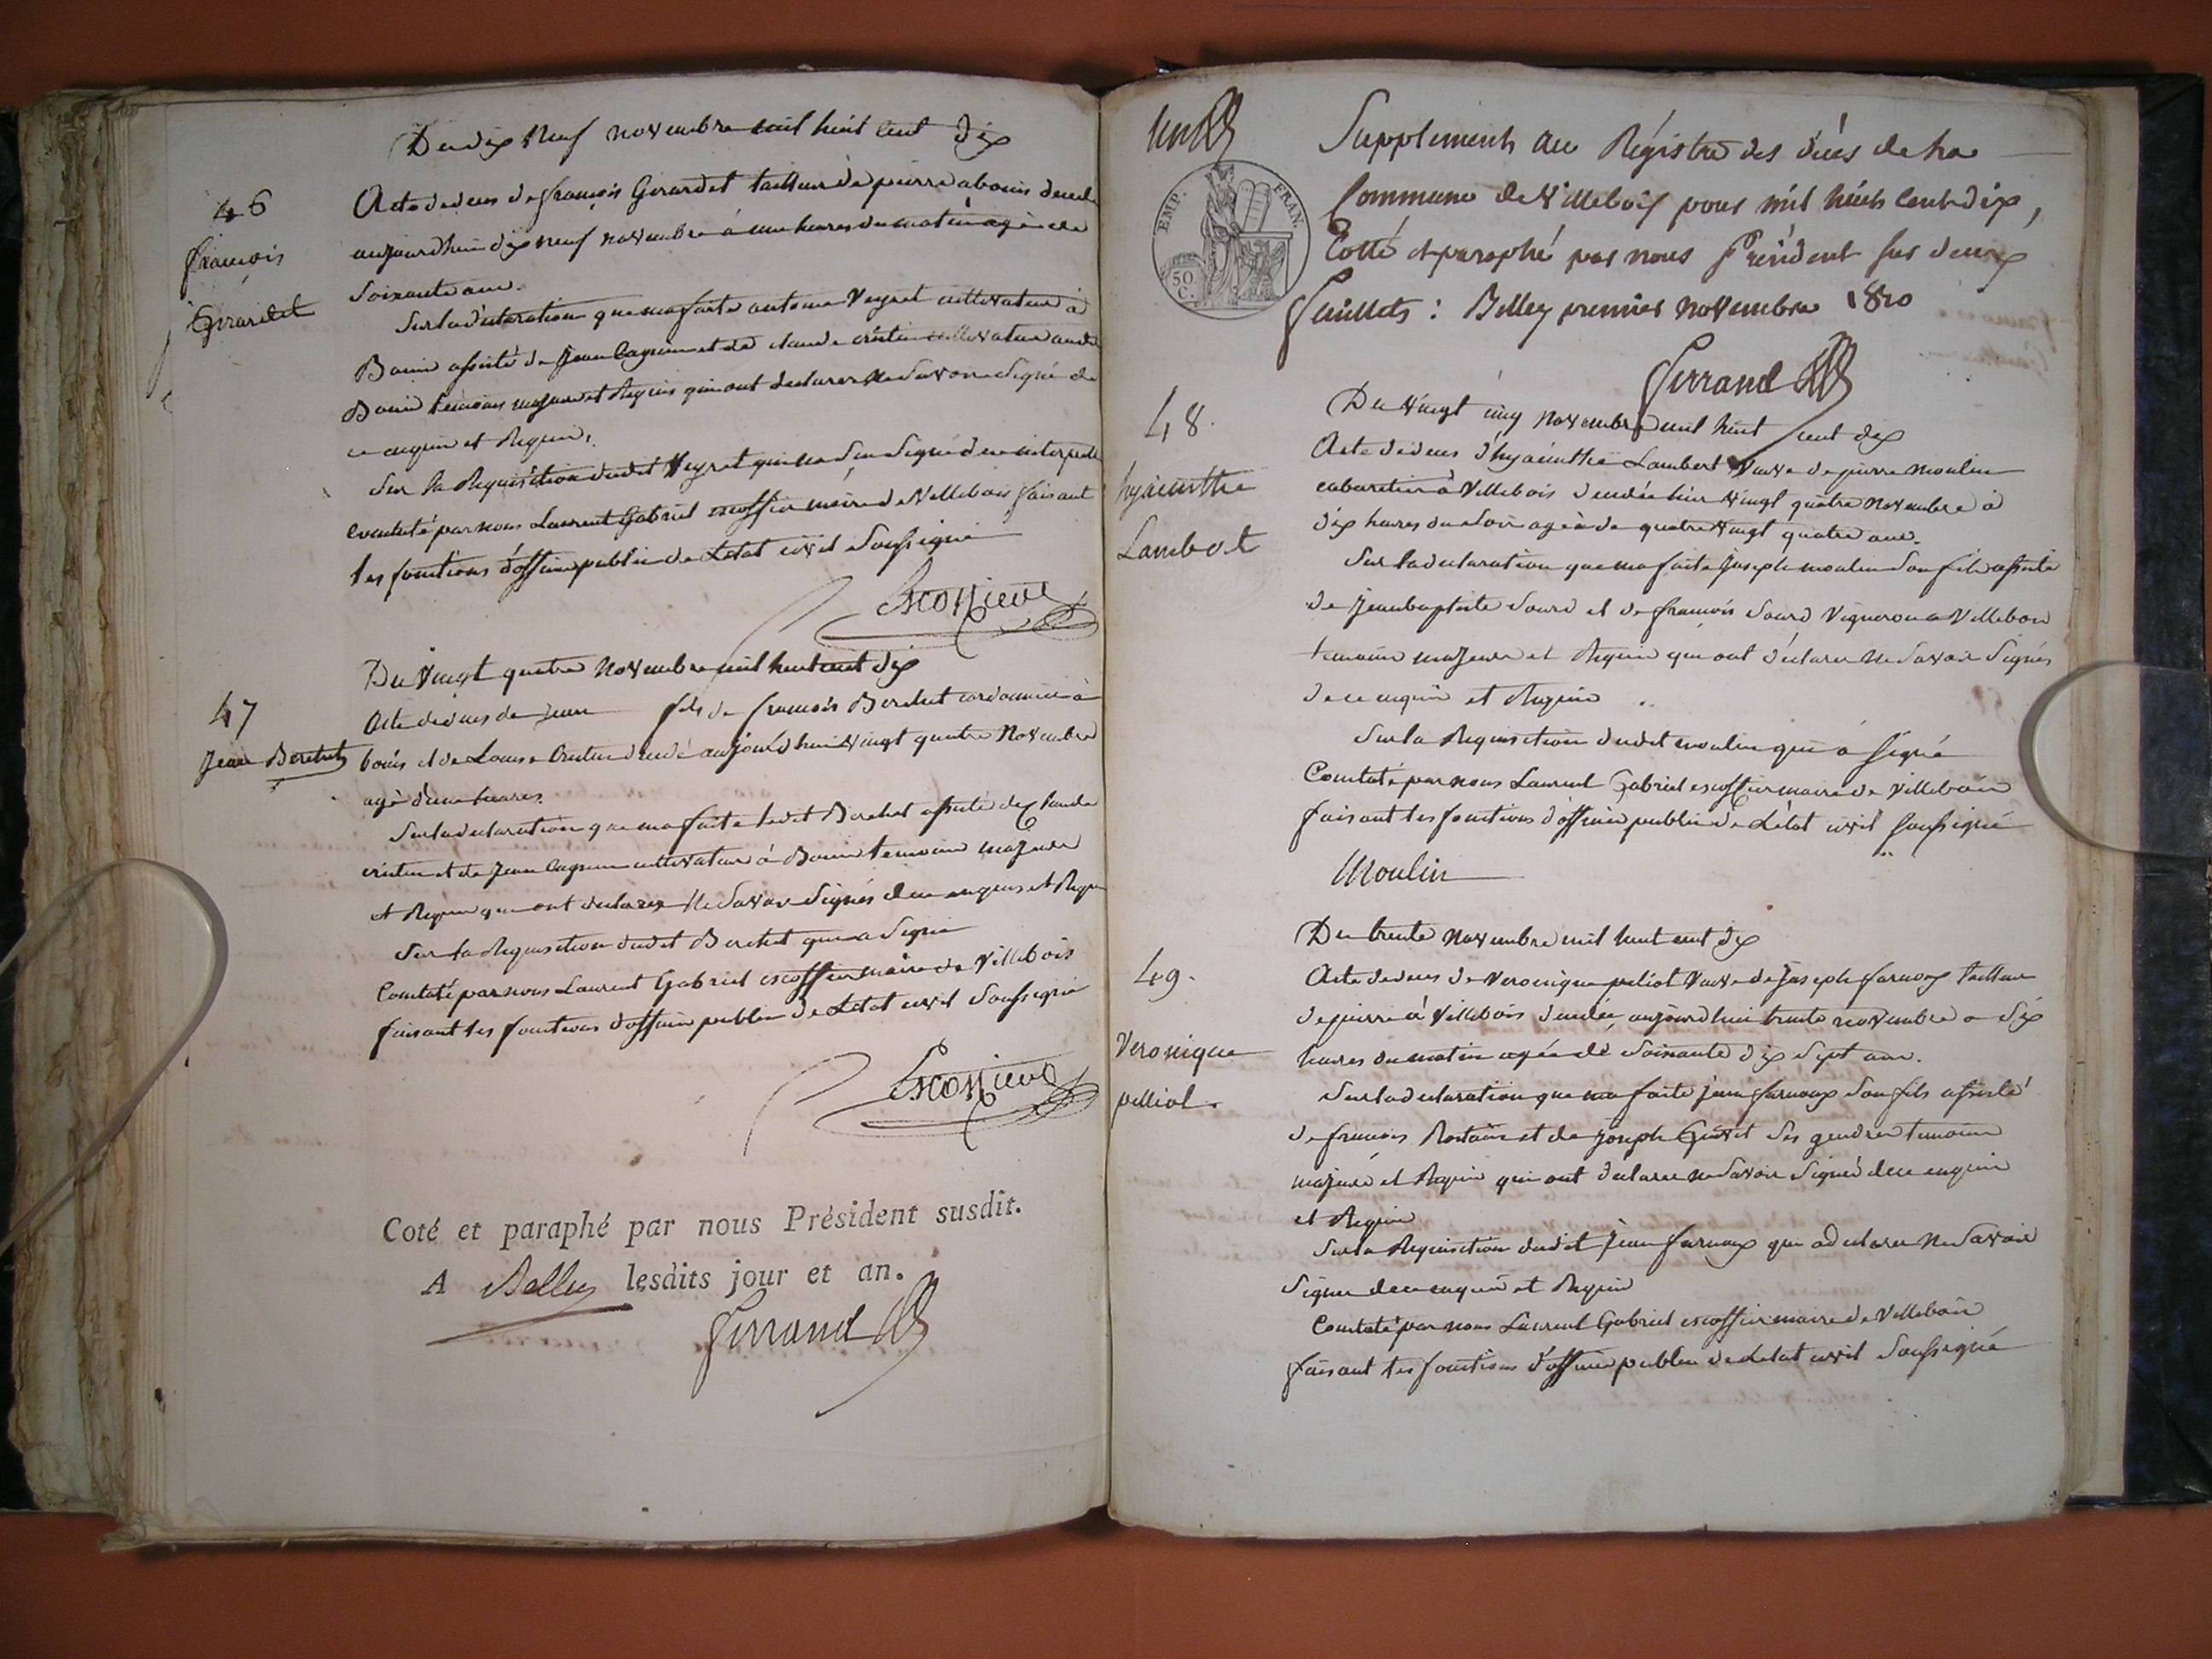 Du dix Neuf novembre mil huit cent dix
46
françois
Girardet
Acte de deces de françois Girardet tailleur de pierre a bouis decede
aujourdhuin dix neuf novembre à une heures du matin agé de
Soixante ans.
Sur la déclaration que ma faite antoine Veyret cultivateur à
Bouis assisté de Jean Cagnin et de claude cristin cultivateur audit
Bouis temoins majeure et Requis qui ont declarer Ne Savoire Signé de
ce enquin et Requin,
Sur la Requisition dudit Veyret qui na Signé de ce interpelle
Constaté par nous Laurent Gabriel escoffier maire de Villebois faisant
les fonctions d'officier public de Letat civil Soussigné
Escoffier
47
Jean Berchet
Du Vingt quatre Novembre mil huit cent dix
Acte de deces de jean fils de françois Berchet cordonnier à
bouis et de Louise Cristin decedé aujourd'huin Vingt quatre Novembre
agé d'une heures.
Sur la declaration que ma faite ledit Berchet assisté de Claude
cristin et de Jean Cagnin cultivateur à Bouis temoins majeure
et Requin qui ont declarer Ne Savoir Signés de ce enquis et Requi
Sur la Requisition dudit Berchet qui a Signé
Constaté par nous Laurent Gabriel escoffier maire de Villebois
faisant les fonctions d'officier public de Letat civil Soussigné
Escoffier
Coté et paraphé par nous Président susdit.
A Belley lesdits jour et an.
Ferrand
un
EMP. FRAN.
50 C.
Supplement au Régistre des décés de la
Commune de Villebois pour mil huit cent dix,
Cotté et paraphé par nous Président sur deux
feuillets : Belley premier novembre 1810
Ferrand
48.
hyacinthe
Lambert
Du Vingt cinq novembre mil huit cent dix
Acte de deces d'hyacinthe Lambert Veuve de pierre moulin
cabaretier à Villebois decedée hier Vingt quatre Novembre à
dix heures du Soir agée de quatre Vingt quatre ans.
Sur la declaration que ma faite Joseph moulin Son fils assisté
de Jean baptiste Sourd et de françois Sourd Vigneron a Villebois
temoins majeure et Requin qui ont déclarer Ne Savoir Signés
de ce enquin et Requin
Sur la Requisition dudit moulin qui à Signé
Constaté par nous Laurent Gabriel escoffier maire de Villebois
faisant les fonctions d'officier public de L'état civil soussigné
Moulin
49.
Veronique
pelliot.
Du trente Novembre mil huit cent dix
Acte de deces de Veronique peliot Veuve de Joseph farnoux tailleur
de pierre à Villebois decedée, aujourdhui trente novembre a dix
heures du matin agée de Soixante dix Sept ans.
Sur la declaration que ma faite jean farnoux Son fils assisté
de francois Rostain et de joseph Ses gendres temoins
majeure et Requin qui ont declarer ne Savoir Signé de ce enquin
et Requin
Sur la Requisition dudit Jean farnoux qui a declarer Ne Savoir
Signer de ce enquin et Requin
Constaté par nous Laurent Gabriel escoffier maire de Villebois
faisant les fonctions d'officier public de Letat civil Soussigné